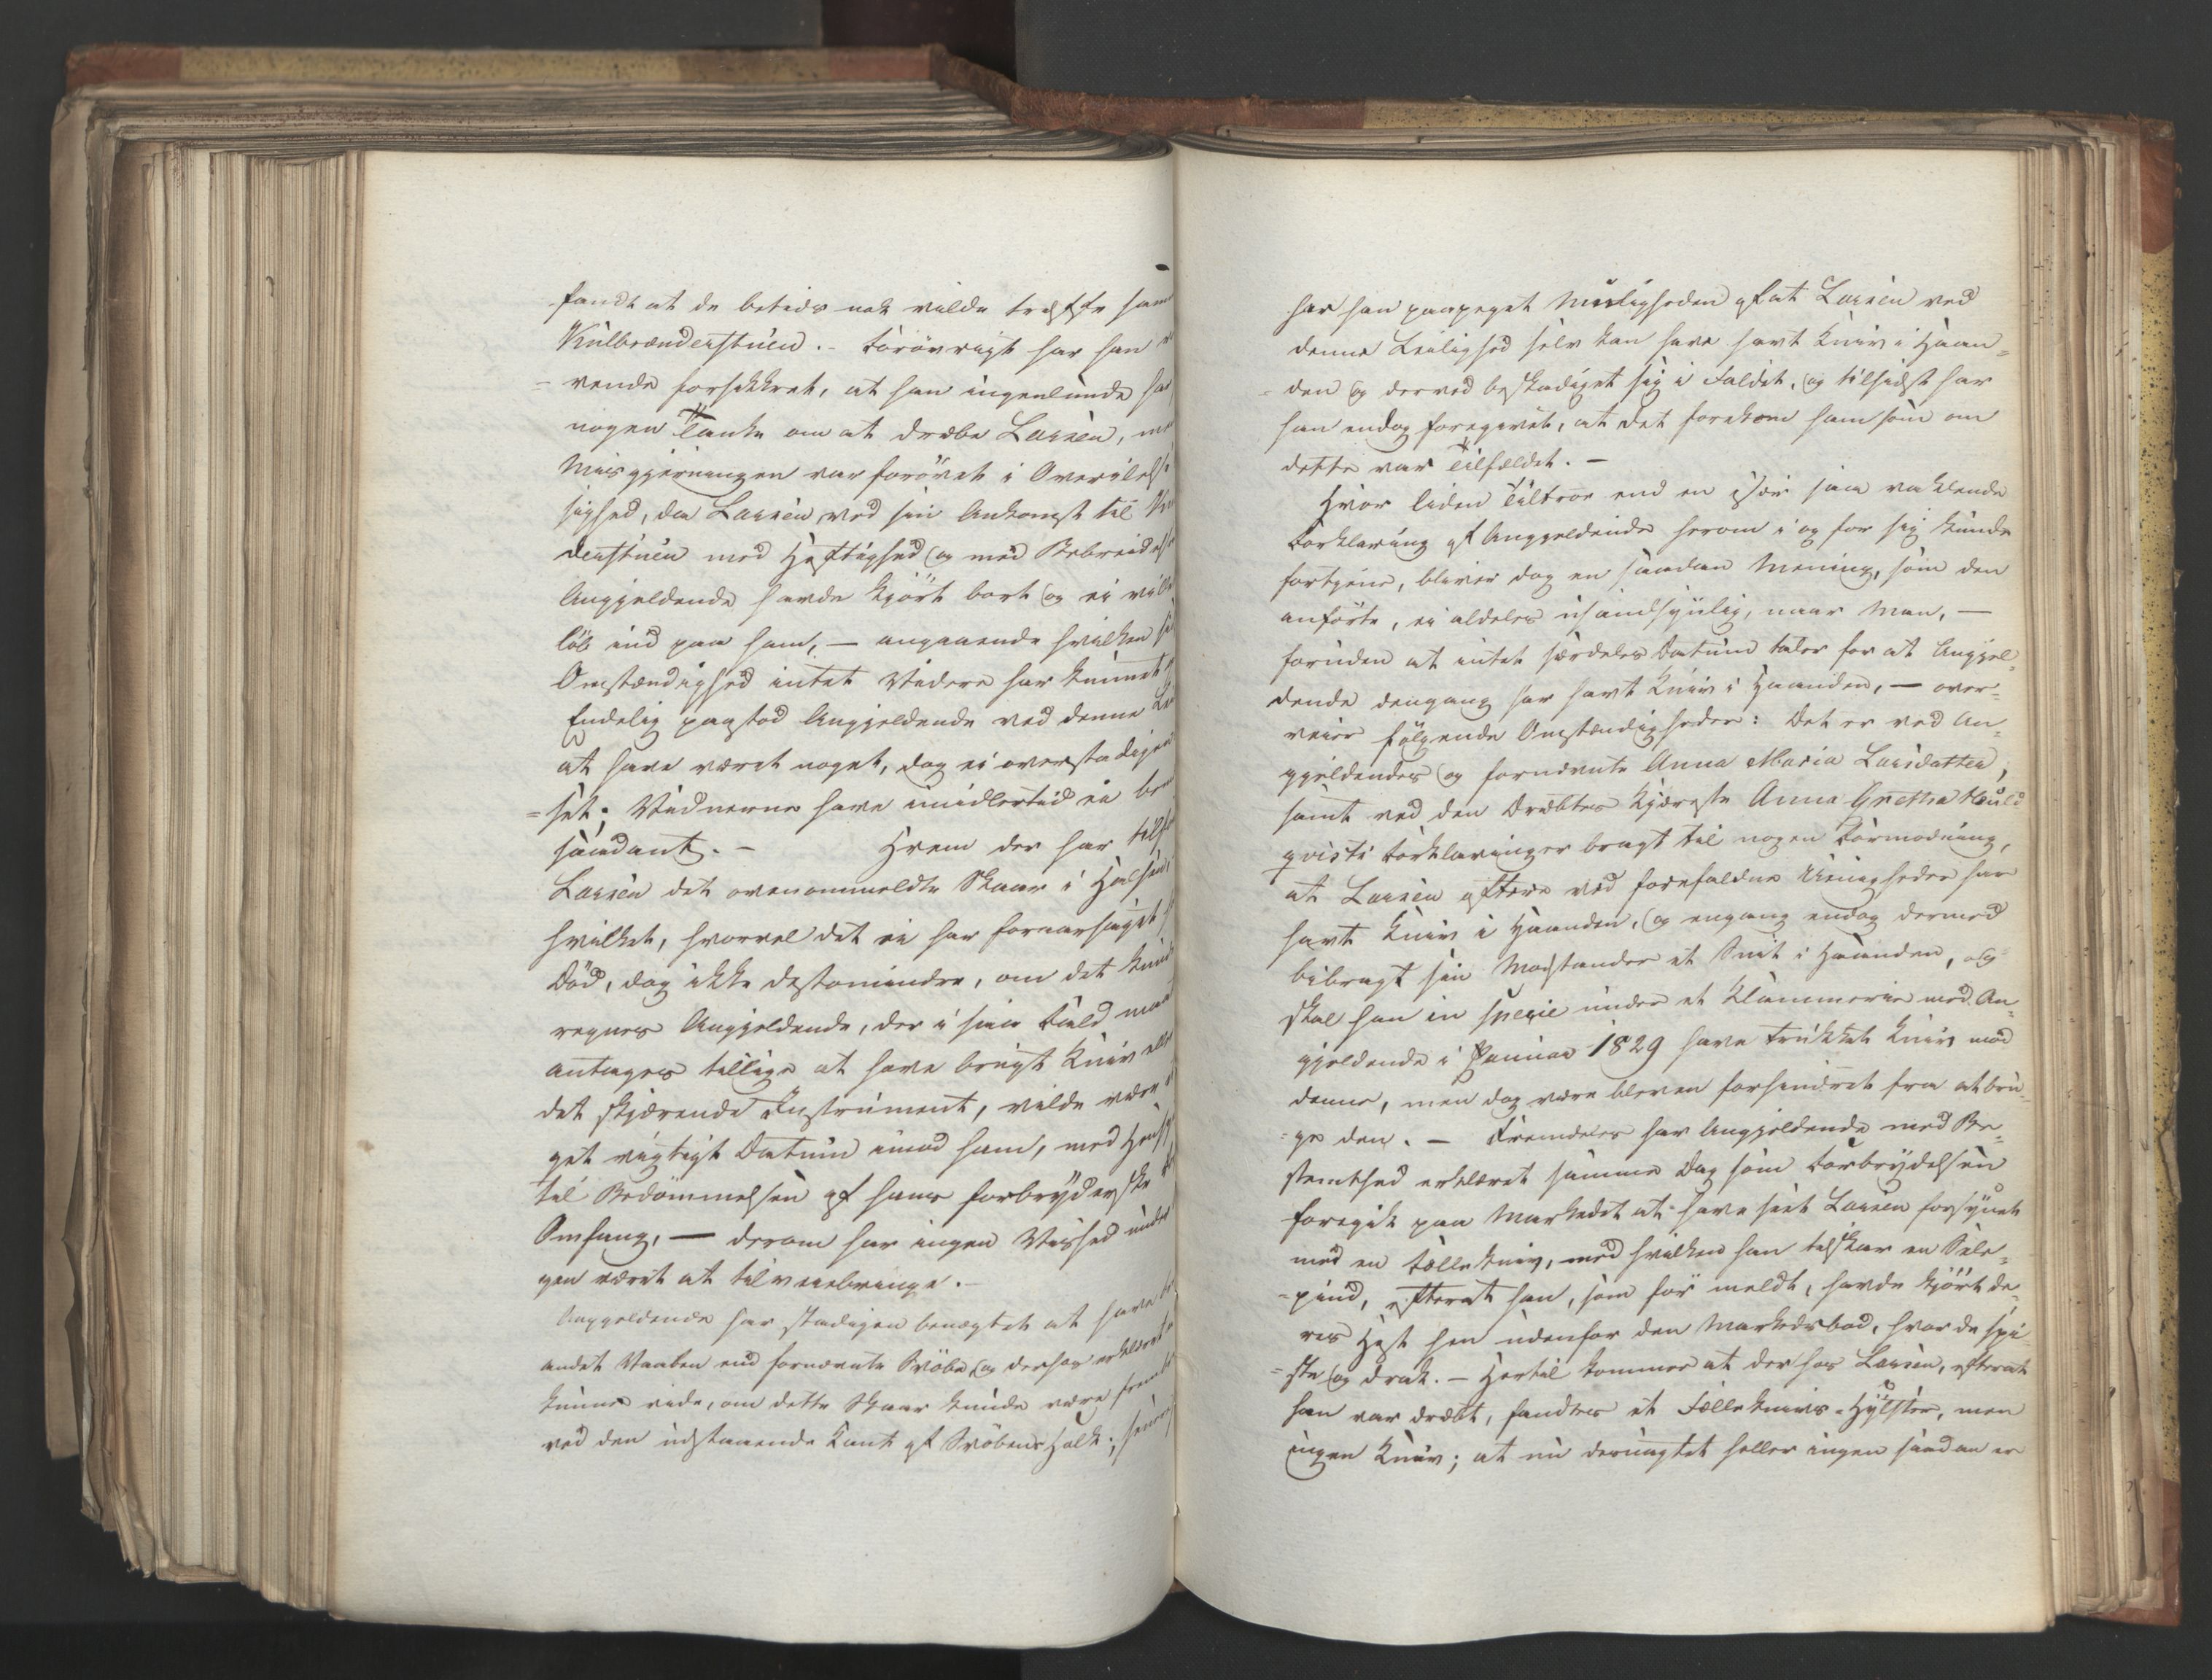 fandt at de betids nok vilde træffe ham
Kulbrænderstuen. - Forøvrigt har han
= vende forsikkret, at han ingenlunde ha
nogen Tanke om at dræbe Larsen, m
Misgjerningen var forøvet i Overilels
sighed, da Larsen, ved sin Ankomst til
derstuen med Hæftighed og med Bebreidels
Angjeldende havde kjørt bort og ei vilde
løb ind paa ham, — angaaende hvilken
Omstændighed intet Videre har kunnet
Endelig paastod Angjeldende ved denne
at have været noget, dog ei overstadigen
= set; Vidnerne have imidlertid ei be
saadant. - Hvem der har tilf
Larsen det ovenommeldte Skaar i Halsen,
hvilket, hvorvel det ei har foraarsaget
Død, dog ikke destomindre, om det kund
regnes Angjeldende, der i saa Fald maa
antages tillige at have brugt Kniv elle
det skjærende Instrument, vilde være
get vigtigt Datum imod ham, med Hensy
til Bedømmelsen af hans forbryderske
Omfang, — derom har ingen Vished
gen været at tilveiebringe. -
Angjeldende har stadigen benægtet at have
andet Vaaben end fornævnte Svøbe, og derhos erklæret
kunne vide, om dette Skaar kunde være frem
ved den udstaaende Kant af Svøbens Holk;
har han paapeget Muligheden af at Larsen ved
denne Leilighed selv kan have havt Kniv i Haan=
= den og derved beskadiget sig i Faldet, og tilsidst har
han endog foregivet, at det forekom ham som om
dette var Tilfældet. -
Hvor liden Tiltroe end en især saa vaklende
Forklaring af Angjeldende herom i og for sig kunde
fortjene, bliver dog en saadan Mening, som den
anførte, ei aldeles usandsynlig, naar man, —
foruden at intet særdeles Datum taler for at Angjel=
dende dengang har havt Kniv i Haanden, — over=
veier følgende Omstændigheder: Det er ved An=
gjeldendes og fornævnte Anna Maria Larsdatter,
samt ved den Dræbtes Kjæreste Anna Gretha
qvists Forklaringer bragt til nogen Formodning,
at Larsen oftere ved forefaldne Uenigheder har
havt Kniv i Haanden, og engang endog dermed
bibragt sin Modstander et Snit i Haanden, og
skal han in specie under et Klammerie med An=
gjeldende i Januar 1829 have trukket Kniv mod
denne, men dog være bleven forhindret fra at bru=
= ge den. — Fremdeles har Angjeldende med Be=
stemthed erklæret samme Dag som Forbrydelsen
foregik paa Markedet at have seet Larsen forsynet
med en Follekniv, med hvilken han tilskar en Sele=
= pind, efterat han, som før meldt, havde kjørt de=
res Hest hen udenfor den Markedsbod, hvor de spi=
= ste og drak. — Hertil kommer at der hos Larsen, efterat
han var dræbt, fandtes et Follekniivs-Hylster, men
ingen Kniv; at nu deruagtet heller ingen saadan er